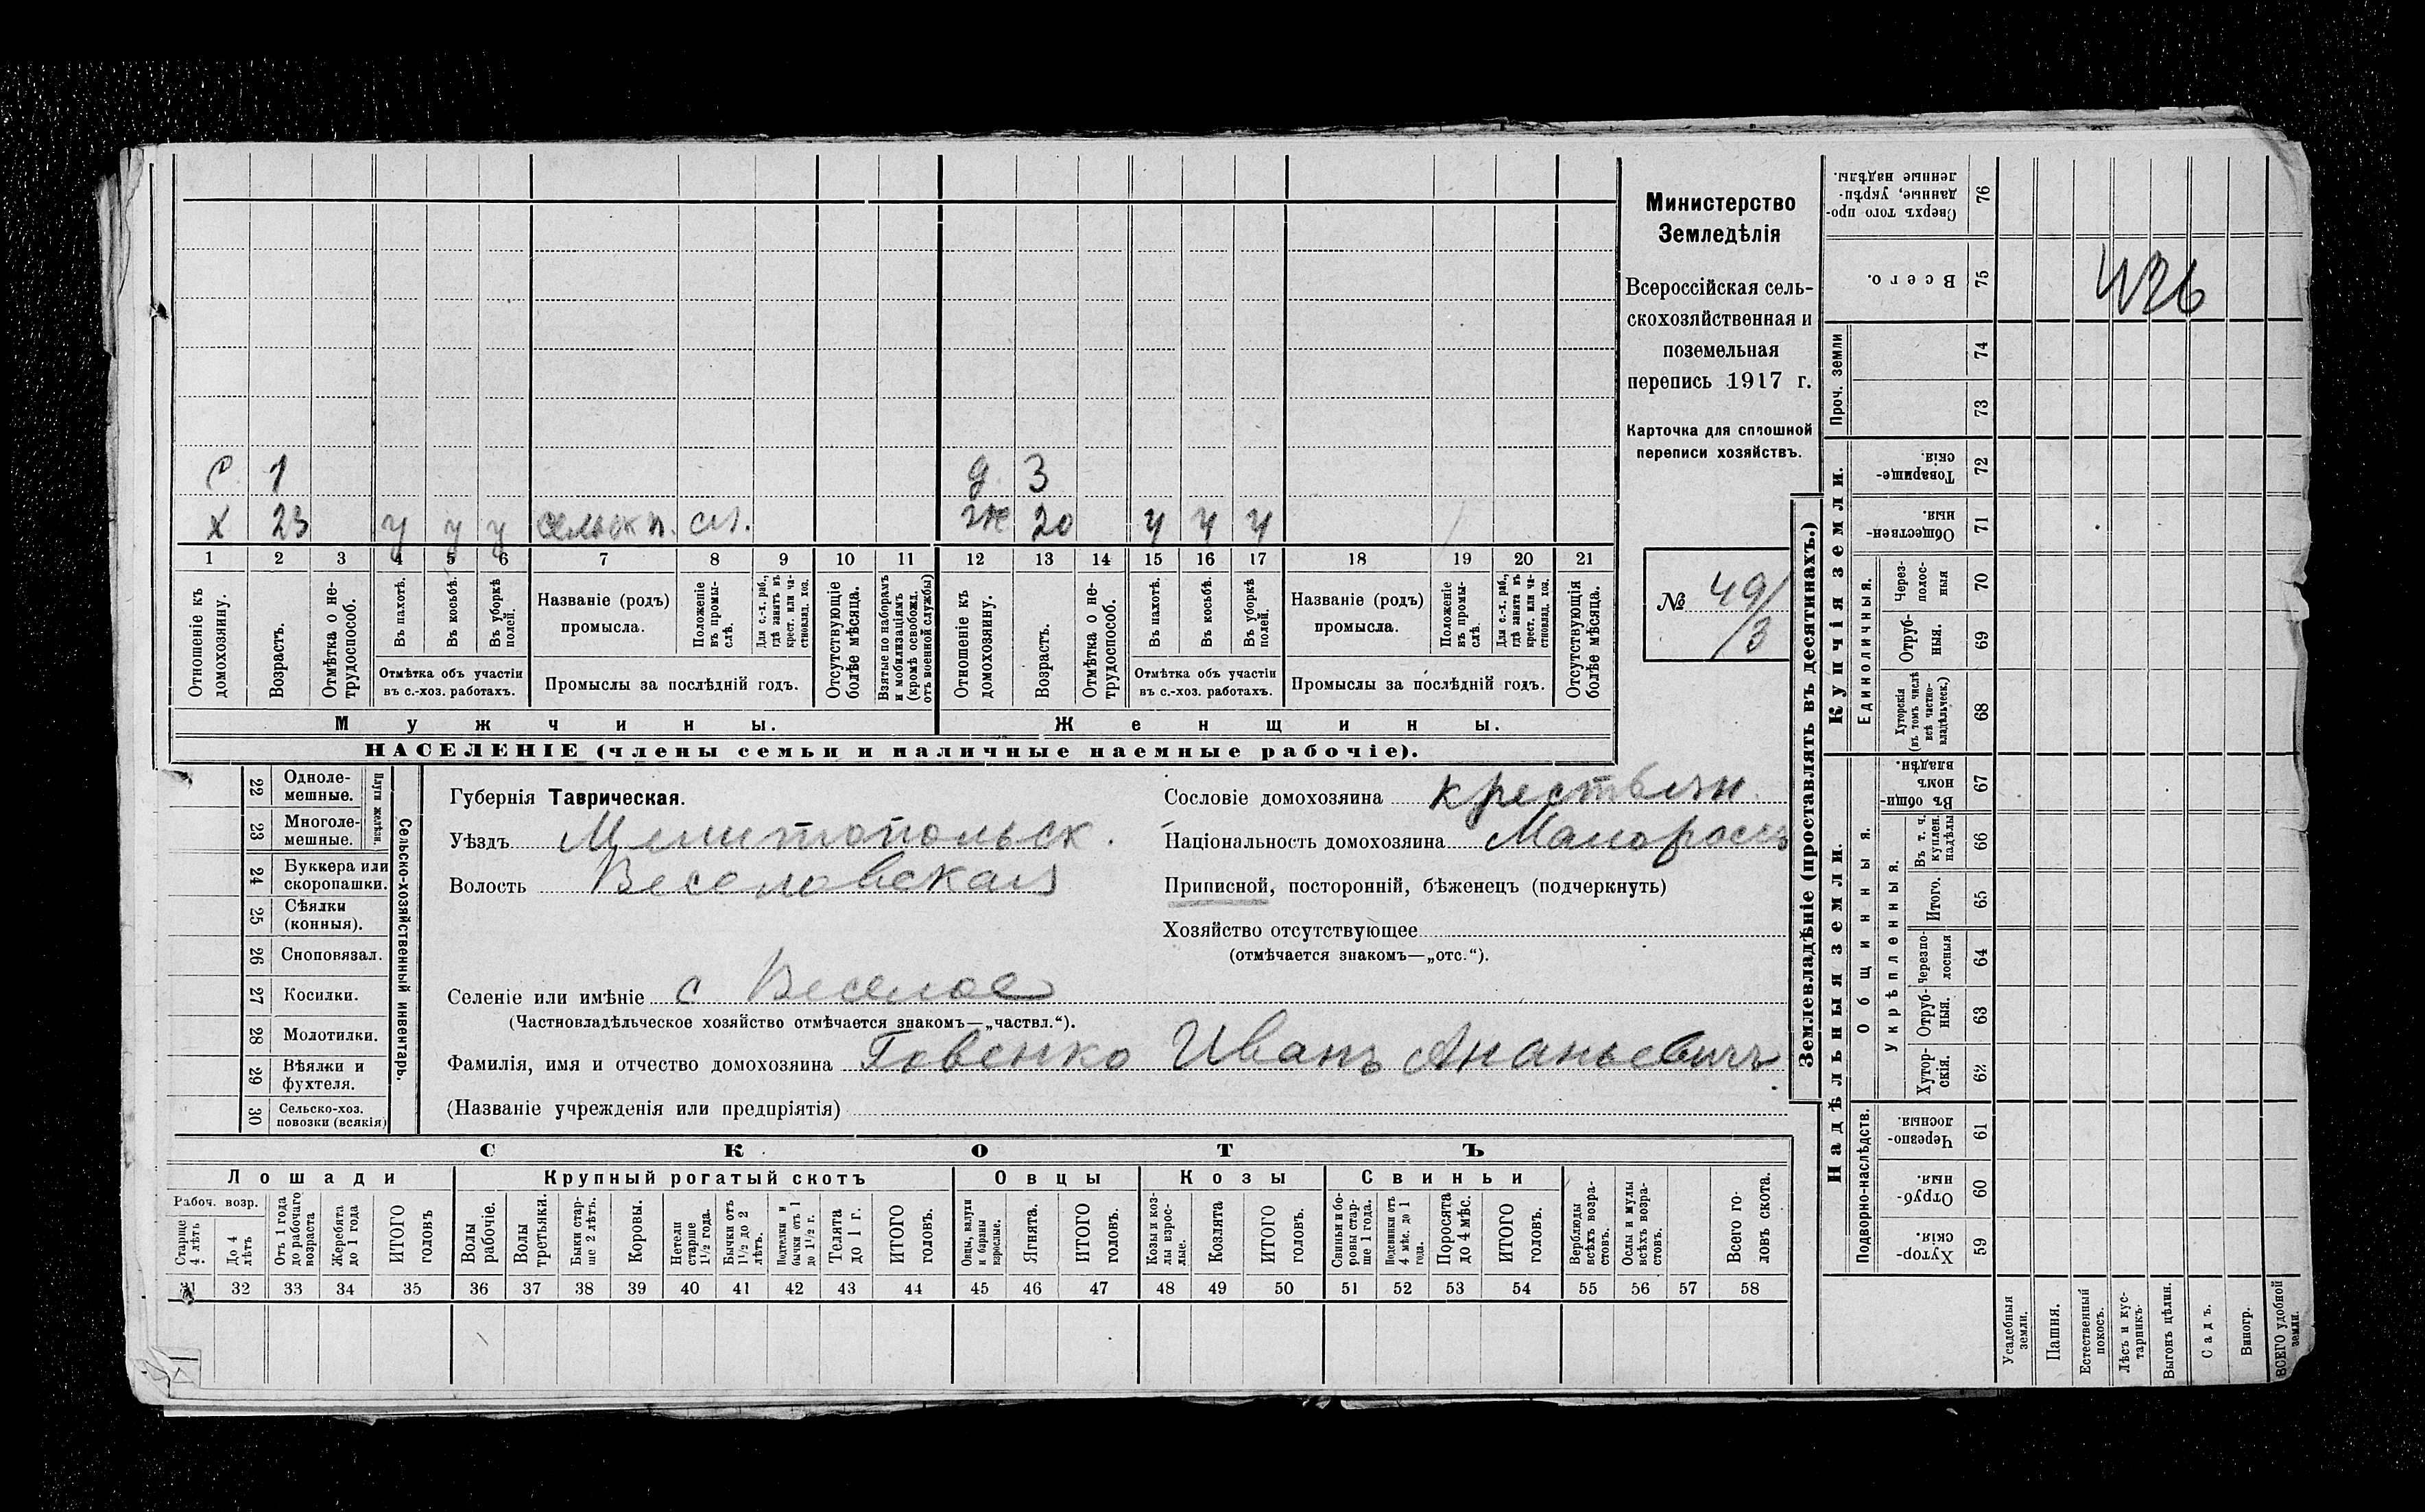 Министерство
Земледѣлія
Всероссійская сель-
скохозяйственная и
поземельная
перепись 1917 г.
Карточка для сплошной
переписи хозяйствъ.
№ 49/3
с. 1 д. 3
х 23 у у у сельск. ж 20 у у у
1 2 3 4 5 6 7 8 9 10 11 12 13 14 15 16 17 18 19 20 21
Отношеніе къ домохозяину.
Возрастъ.
Отмѣтка о не-трудоспособ.
Въ пахотѣ.
Въ косьбѣ.
Въ уборкѣ полей.
Отмѣтка объ участіи
въ с.-хоз. работахъ.
Названіе (родъ)
промысла.
Положеніе въ промы-слѣ.
Для с.-х. раб., гдѣ занятъ въ крест. или ча-стновлад. хоз.
Промыслы за послѣдній годъ.
Отсутствующіе болѣе мѣсяца.
Взятые по наборамъ и мобилизаціямъ (кромѣ освобожд. отъ военной службы)
Отношеніе къ домохозяину.
Возрастъ.
Отмѣтка о не-трудоспособ.
Въ пахотѣ.
Въ косьбѣ.
Въ уборкѣ полей.
Отмѣтка объ участіи
въ с.-хоз. работахъ.
Названіе (родъ)
промысла.
Положеніе въ промы-слѣ.
Для с.-х. раб., гдѣ занята въ крест. или ча-стновлад. хоз.
Промыслы за послѣдній годъ.
Отсутствующія болѣе мѣсяца.
Мужчины. Женщины.
НАСЕЛЕНІЕ (члены семьи и наличные наемные рабочіе).
Сельско-хозяйственный инвентарь.
Плуги желѣзн.
22 Одноле-мешные.
23 Многоле-мешные.
24 Буккера или скоропашки.
25 Сѣялки (конныя).
26 Сноповязал.
27 Косилки.
28 Молотилки.
29 Вѣялки и фухтеля.
30 Сельско-хоз. повозки (всякія)
Губернія Таврическая.
Уѣздъ Мелитопольск.
Волость Веселовская
Селеніе или имѣніе с Веселое
(Частновладѣльческое хозяйство отмѣчается знакомъ—„частвл.“).
Фамилія, имя и отчество домохозяина Говенко Иванъ Ананьевичъ
(Названіе учрежденія или предпріятія)
Сословіе домохозяина крестьян.
Національность домохозяина Малороссъ
Приписной, посторонній, бѣженецъ (подчеркнуть)
Хозяйство отсутствующее
(отмѣчается знакомъ—„отс.“).
СКОТЪ
Лошади Крупный рогатый скотъ Овцы Козы Свиньи
Рабоч. возр.
Старше 4 лѣтъ
До 4 лѣтъ
Отъ 1 года до рабочаго возраста
Жеребята до 1 года
ИТОГО головъ
Волы рабочіе.
Волы третьяки.
Быки стар-ше 2 лѣтъ.
Коровы.
Нетели старше 1½ года.
Бычки отъ 1½ до 2 лѣтъ.
Подтелки и бычки отъ 1 до 1½ г.
Телята до 1 г.
ИТОГО головъ.
Овцы, валухи и бараны взрослые.
Ягнята.
ИТОГО головъ.
Козы и коз-лы взрос-лые.
Козлята
ИТОГО головъ.
Свиньи и бо-ровы стар-ше 1 года.
Подсвинки отъ 4 мѣс. до 1 года.
Поросята до 4 мѣс.
ИТОГО головъ.
Верблюды всѣхъ возра-стовъ.
Ослы и мулы всѣхъ возра-стовъ.
Всего го-ловъ скота.
31 32 33 34 35 36 37 38 39 40 41 42 43 44 45 46 47 48 49 50 51 52 53 54 55 56 57 58
Землевладѣніе (проставлять въ десятинахъ.)
Купчія земли.
Надѣльныя земли.
Сверхъ того про-данные, укрѣп-ленные надѣлы. 76
Всего. 75
Проч. земли 74
73
Товарище-скія. 72
Обществен-ныя. 71
Единоличныя.
Через-полос-ныя 70
Отруб-ныя. 69
Хуторскія (въ томъ числѣ всѣ частно-владѣльческ.) 68
Общинныя.
Въ общи-номъ владѣн. 67
Укрѣпленныя.
Въ т. ч. куплен. надѣлы 66
Итого. 65
Черезпо-лосныя 64
Отруб-ныя. 63
Хутор-скія. 62
Подворно-наслѣдств.
Черезпо-лосныя. 61
Отруб-ныя. 60
Хутор-скія. 59
Усадебныя земли.
Пашня.
Естественный покосъ.
Лѣсъ и кус-тарникъ.
Выгонъ цѣлин.
Садъ.
Виногр.
ВСЕГО удобной земли.